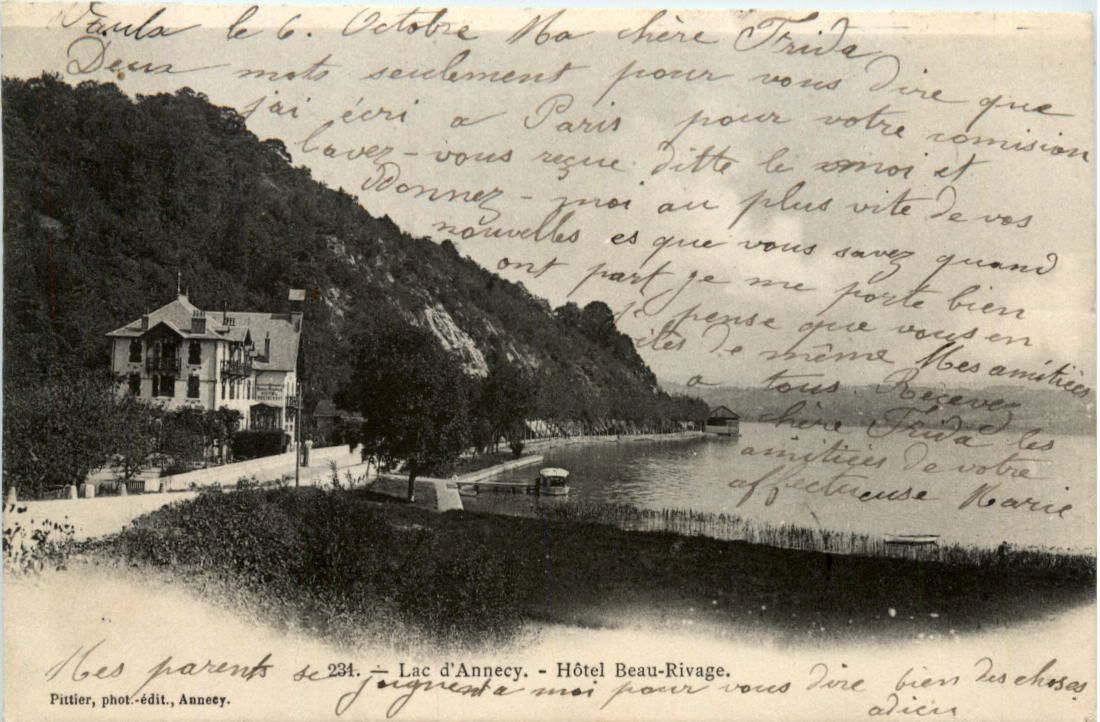 le 6. Octobre Ma chère Frida
Deux mots seulement pour vous dire que
j'ai écri a Paris pour votre comision
lavez-vous reçue ditte le moi et
Donnez-moi au plus vite de vos
nouvelles es que vous savez quand
ont part je me porte bien
pense que vous en
ites de même Mes amitiées
a tous Recevez
chère Frida les
amitiées de votre
affectueuse Marie
Mes parents se joignent a moi pour vous dire bien des choses
adieu
231. - Lac d'Annecy. - Hôtel Beau-Rivage.
Pittier, phot.-édit., Annecy.